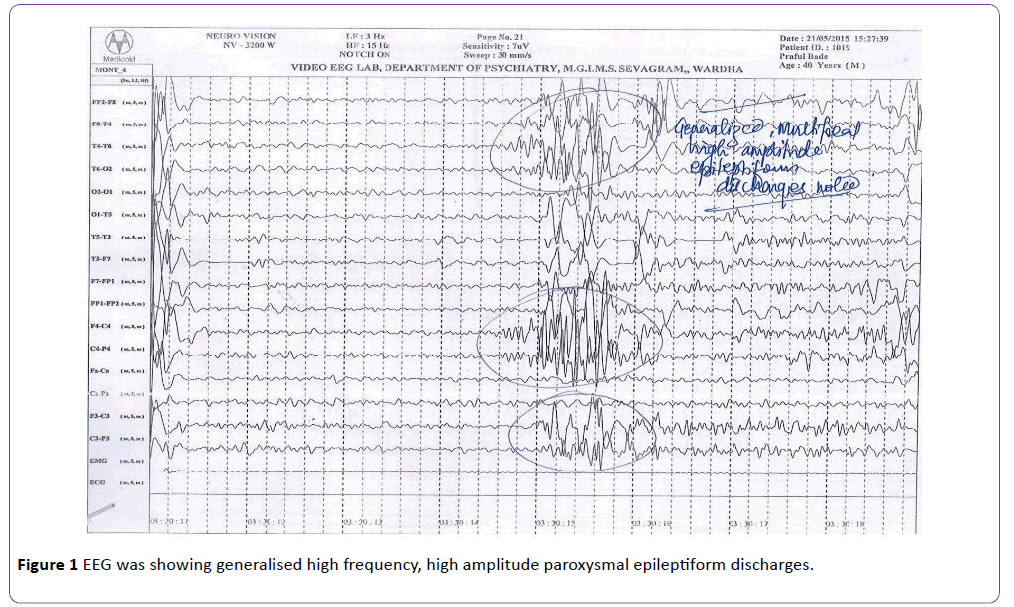 NEURO VISION
NV - 3200 W
LF : 3 Hz
HF : 15 Hz
NOTCH ON
Page No. 21
Sensitivity : 7uV
Sweep : 30 mm/s
Date : 21/05/2015 15:27:39
Patient ID. : 1019
Praful Bade
Age : 40 Years (M)
Medicaid
VIDEO EEG LAB, DEPARTMENT OF PSYCHIATRY, M.G.I.M.S. SEVAGRAM,, WARDHA
MONT_4
FP2-F8
F8-T4
T4-T6
T6-O2
O2-O1
O1-T5
T5-T3
T3-F7
F7-FP1
FP1-FP2
F4-C4
C4-P4
Fz-Cz
Cz-Pz
F3-C3
C3-P3
EMG
ECG
Generalized, multifocal
high amplitude
epileptiform
discharges noted
03:30:11 03:30:12 03:30:13 03:30:14 03:30:15 03:30:16 03:30:17 03:30:18
Figure 1 EEG was showing generalised high frequency, high amplitude paroxysmal epileptiform discharges.